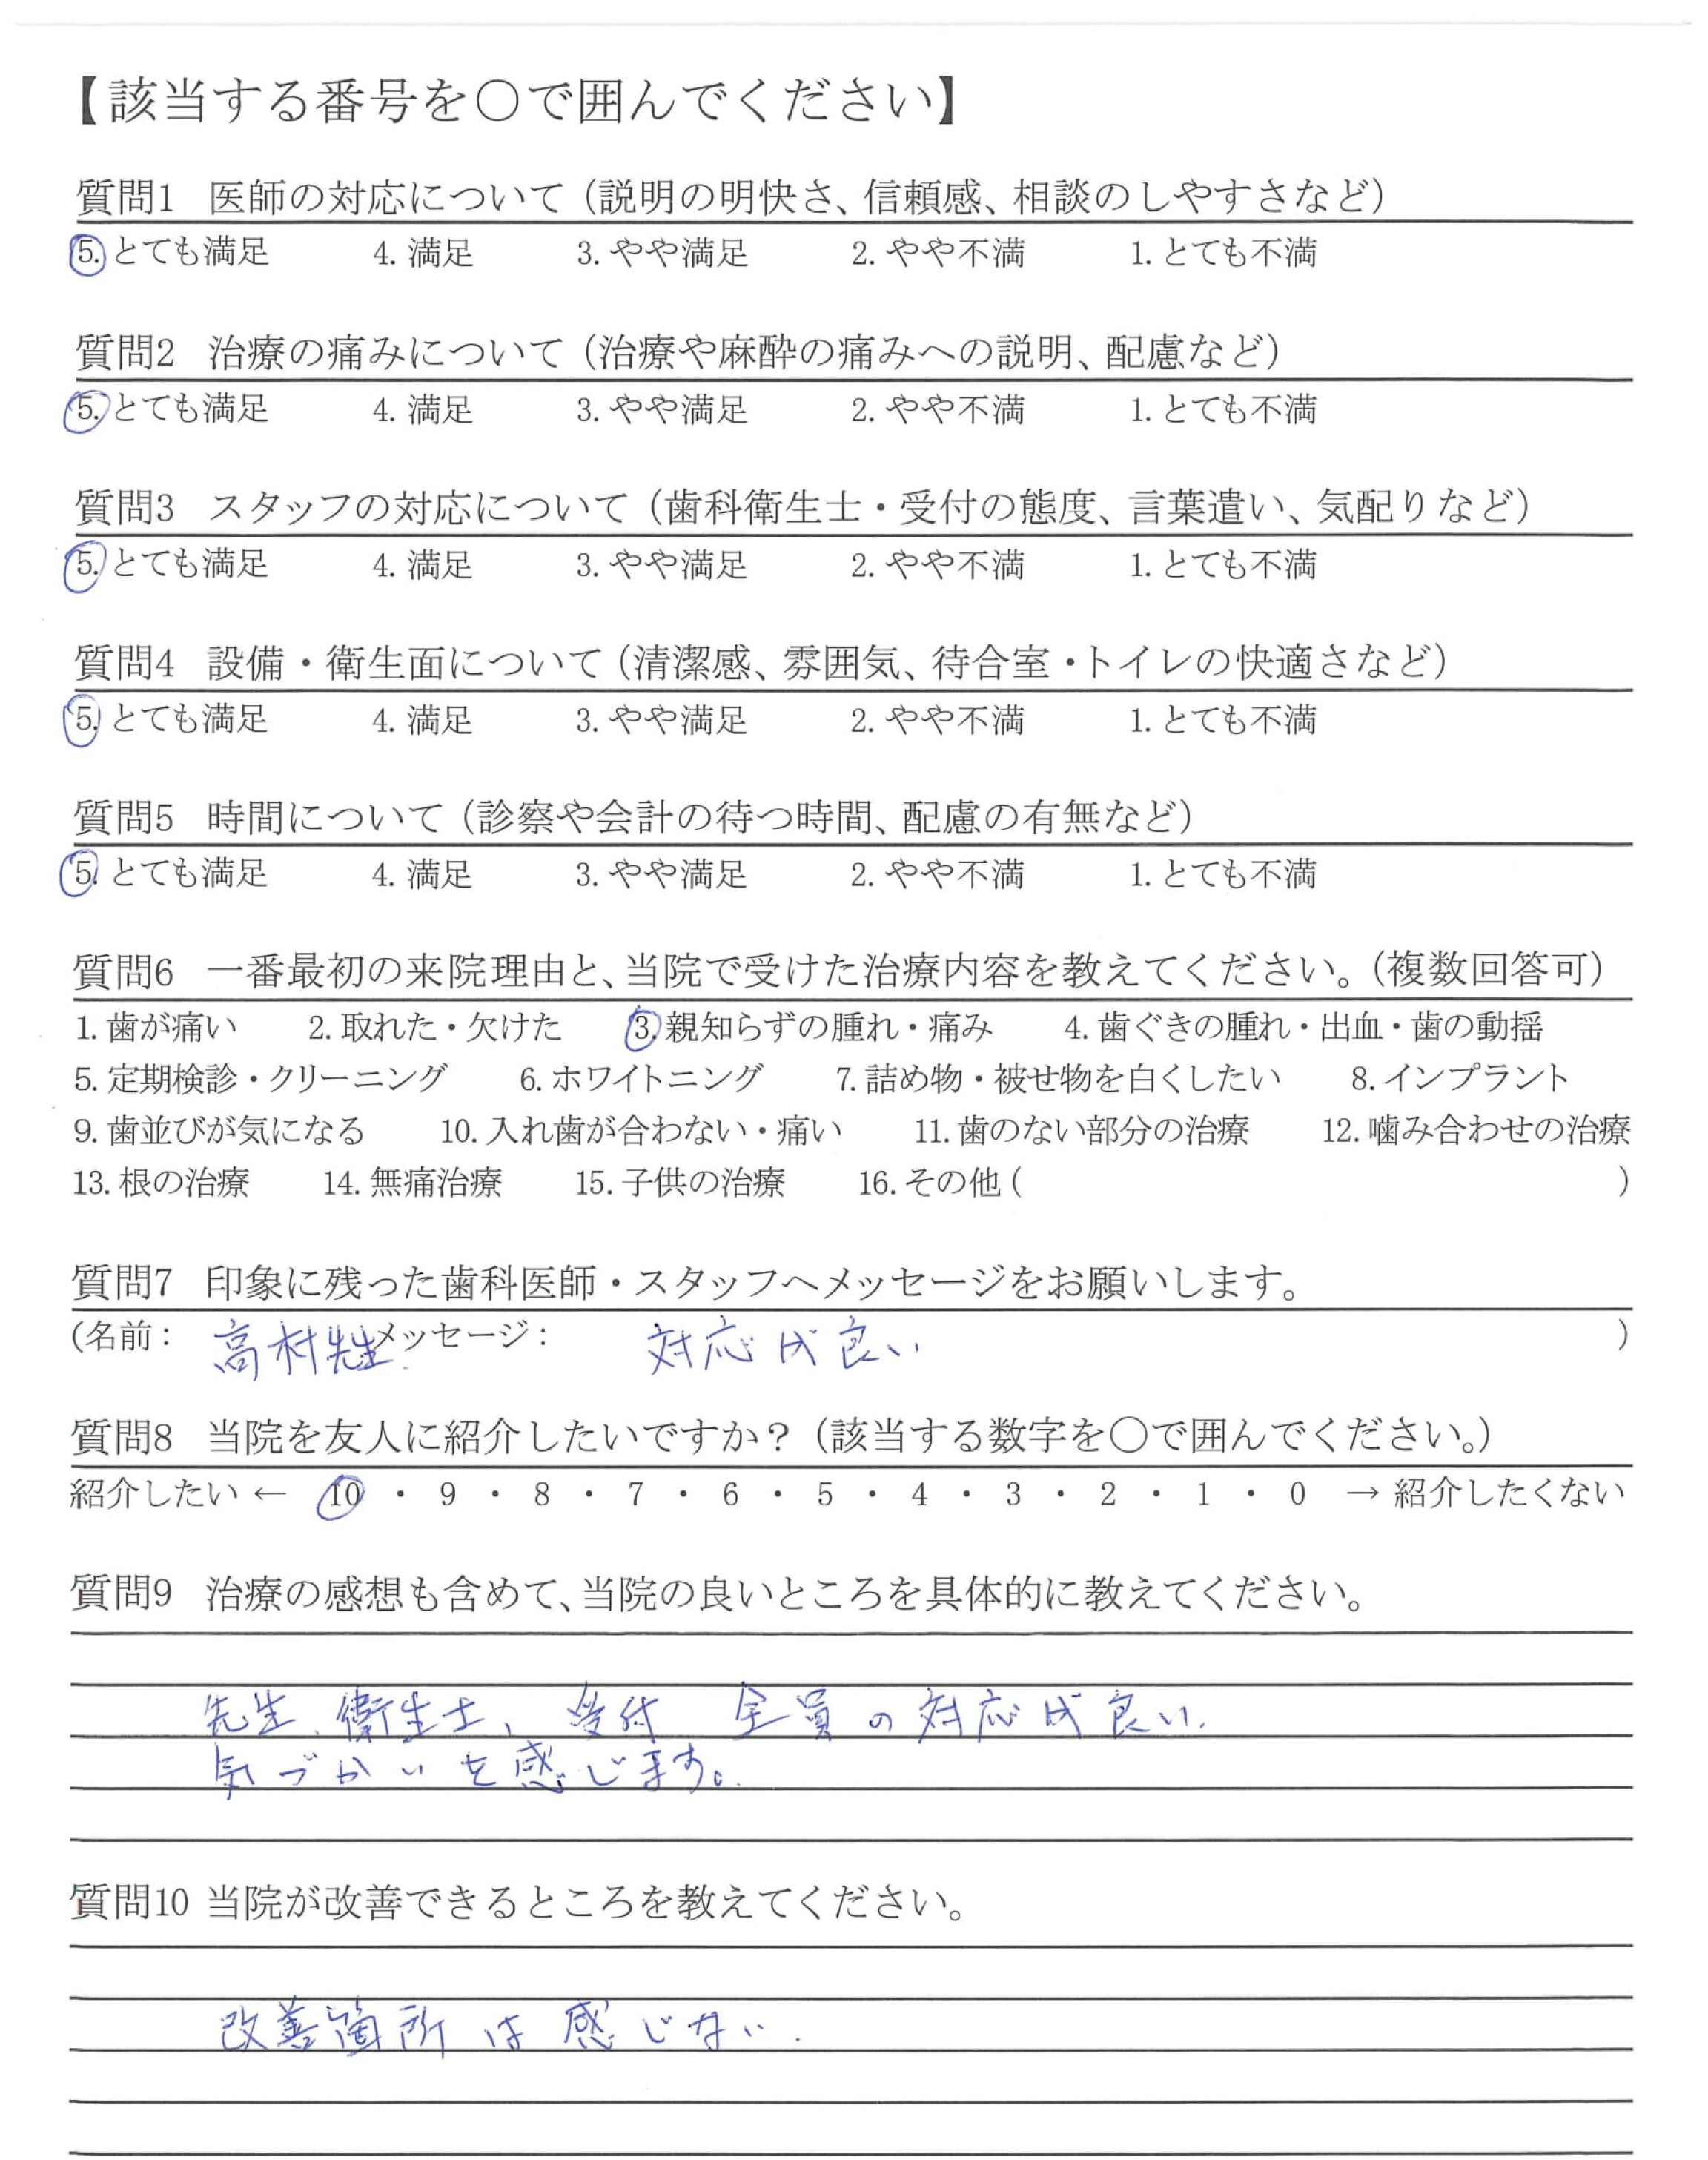 【該当する番号を○で囲んでください】
質問1 医師の対応について（説明の明快さ、信頼感、相談のしやすさなど）
5. とても満足 4. 満足 3. やや満足 2. やや不満 1. とても不満
質問2 治療の痛みについて（治療や麻酔の痛みへの説明、配慮など）
5. とても満足 4. 満足 3. やや満足 2. やや不満 1. とても不満
質問3 スタッフの対応について（歯科衛生士・受付の態度、言葉遣い、気配りなど）
5. とても満足 4. 満足 3. やや満足 2. やや不満 1. とても不満
質問4 設備・衛生面について（清潔感、雰囲気、待合室・トイレの快適さなど）
5. とても満足 4. 満足 3. やや満足 2. やや不満 1. とても不満
質問5 時間について（診察や会計の待つ時間、配慮の有無など）
5. とても満足 4. 満足 3. やや満足 2. やや不満 1. とても不満
質問6 一番最初の来院理由と、当院で受けた治療内容を教えてください。（複数回答可）
1. 歯が痛い 2. 取れた・欠けた 3. 親知らずの腫れ・痛み 4. 歯ぐきの腫れ・出血・歯の動揺
5. 定期検診・クリーニング 6. ホワイトニング 7. 詰め物・被せ物を白くしたい 8. インプラント
9. 歯並びが気になる 10. 入れ歯が合わない・痛い 11. 歯のない部分の治療 12. 噛み合わせの治療
13. 根の治療 14. 無痛治療 15. 子供の治療 16. その他 ( )
質問7 印象に残った歯科医師・スタッフへメッセージをお願いします。
(名前： 高村先生 メッセージ： 対応が良い )
質問8 当院を友人に紹介したいですか？（該当する数字を○で囲んでください。）
紹介したい ← 10 ・ 9 ・ 8 ・ 7 ・ 6 ・ 5 ・ 4 ・ 3 ・ 2 ・ 1 ・ 0 → 紹介したくない
質問9 治療の感想も含めて、当院の良いところを具体的に教えてください。
先生、衛生士、受付 全員の対応が良い.
気づかいを感じます。
質問10 当院が改善できるところを教えてください。
改善箇所は感じない.